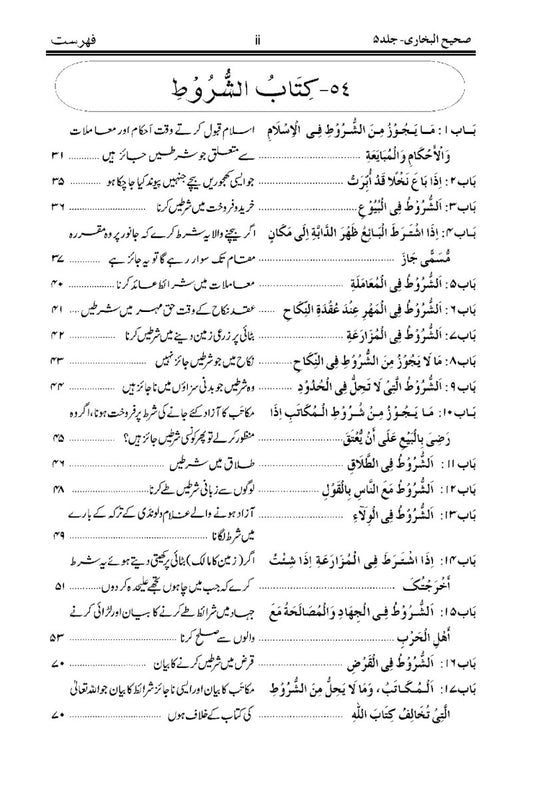 صحیح البخاری - جلد ۵ ii فهرست
۵۴- كِتَابُ الشُّرُوْطِ
بَاب ۱: مَا يَجُوْزُ مِنَ الشُّرُوْطِ فِي الْإِسْلَامِ اسلام قبول کرتے وقت احکام اور معاملات
وَالْأَحْكَامِ وَالْمُبَايَعَةِ ........ سے متعلق جو شرطیں جائز ہیں ........ ۳۱
بَاب ۲: إِذَا بَاعَ نَخْلًا قَدْ أُبِّرَتْ ........ جو ایسی کھجوریں بیچے جنہیں پیوند کیا جا چکا ہو ........ ۳۵
بَاب ۳: اَلشُّرُوْطُ فِي الْبُيُوْعِ ........ خرید و فروخت میں شرطیں کرنا ........ ۳۶
بَاب ۴: إِذَا اشْتَرَطَ الْبَائِعُ ظَهْرَ الدَّابَّةِ إِلَى مَكَانٍ اگر بیچنے والا یہ شرط کرے کہ جانور پر وہ مقررہ
مُسَمًّى جَازَ ........ مقام تک سوار رہے گا تو یہ جائز ہے ........ ۳۷
بَاب ۵: اَلشُّرُوْطُ فِي الْمُعَامَلَةِ ........ معاملات میں شرائط عائد کرنا ........ ۴۰
بَاب ۶: اَلشُّرُوْطُ فِي الْمَهْرِ عِنْدَ عُقْدَةِ النِّكَاحِ عقد نکاح کے وقت حق مہر میں شرطیں ........ ۴۱
بَاب ۷: اَلشُّرُوْطُ فِي الْمُزَارَعَةِ ........ بٹائی پر زرعی زمین دینے میں شرطیں کرنا ........ ۴۲
بَاب ۸: مَا لَا يَجُوْزُ مِنَ الشُّرُوْطِ فِي النِّكَاحِ ........ نکاح میں جو شرطیں جائز نہیں ........ ۴۳
بَاب ۹: اَلشُّرُوْطُ الَّتِيْ لَا تَحِلُّ فِي الْحُدُوْدِ وہ شرطیں جو بدنی سزاؤں میں ناجائز ہیں ........ ۴۴
بَاب ۱۰: مَا يَجُوْزُ مِنْ شُرُوْطِ الْمُكَاتَبِ إِذَا مکاتب کا آزاد کئے جانے کی شرط پر فروخت ہونا، اگر وہ
رَضِيَ بِالْبَيْعِ عَلَى أَنْ يُّعْتَقَ ........ منظور کرلے تو پھر کونسی شرطیں جائز ہیں؟ ........ ۴۵
بَاب ۱۱: اَلشُّرُوْطُ فِي الطَّلَاقِ ........ طلاق میں شرطیں ........ ۴۶
بَاب ۱۲: اَلشُّرُوْطُ مَعَ النَّاسِ بِالْقَوْلِ ........ لوگوں سے زبانی شرطیں طے کرنا ........ ۴۸
بَاب ۱۳: اَلشُّرُوْطُ فِي الْوَلَاءِ ........ آزاد ہونے والے غلام و لونڈی کے ترکہ کے بارے
میں شرط لگانا ........ ۴۹
بَاب ۱۴: إِذَا اشْتَرَطَ فِي الْمُزَارَعَةِ إِذَا شِئْتُ اگر (زمین کا مالک) بٹائی پر کھیتی دیتے ہوئے یہ شرط
أَخْرَجْتُكَ ........ کرے کہ جب میں چاہوں تجھے علیحدہ کر دوں ........ ۵۱
بَاب ۱۵: اَلشُّرُوْطُ فِي الْجِهَادِ وَالْمُصَالَحَةُ مَعَ جہاد میں شرائط طے کرنے کا بیان اور لڑائی کرنے
أَهْلِ الْحَرْبِ ........ والوں سے صلح کرنا ........ ۵۳
بَاب ۱۶: اَلشُّرُوْطُ فِي الْقَرْضِ ........ قرض میں شرطیں کرنے کا بیان ........ ۷۰
بَاب ۱۷: اَلْمُكَاتَبُ، وَمَا لَا يَحِلُّ مِنَ الشُّرُوْطِ مکاتب کا بیان اور ایسی ناجائز شرائط کا بیان جو اللہ تعالیٰ
الَّتِيْ تُخَالِفُ كِتَابَ اللهِ ........ کی کتاب کے خلاف ہوں ........ ۷۰